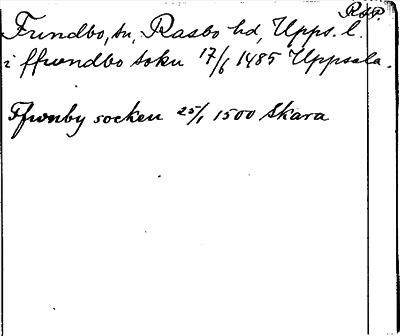 R o P.
Frundbo, sn, Rasbo hd, Upps. l.
i ffrwndbo sokn 17/6 1485 Uppsala.
Ffrwnby socken 25/1 1500 Skara